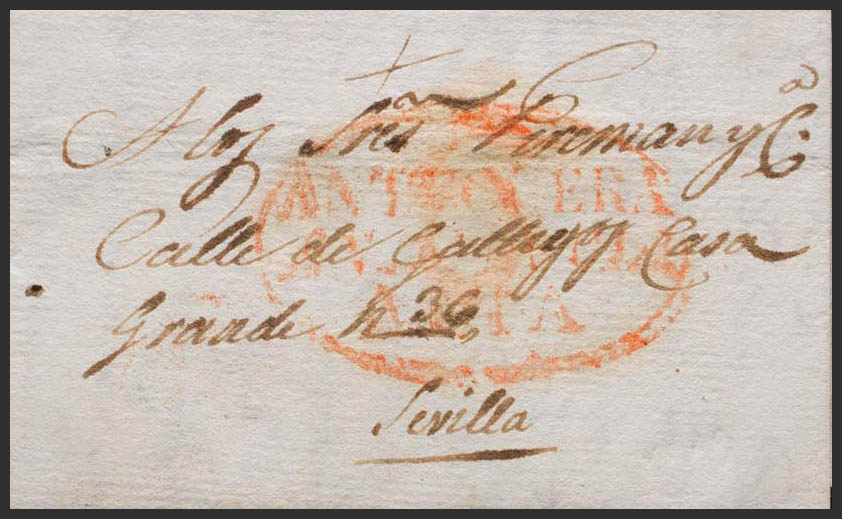 A los Sres Firerman y Ca
Calle de Gallegos Casa
Grande n 36,
Sevilla
ANTEQUERA
ANDALUCIA
ALTA